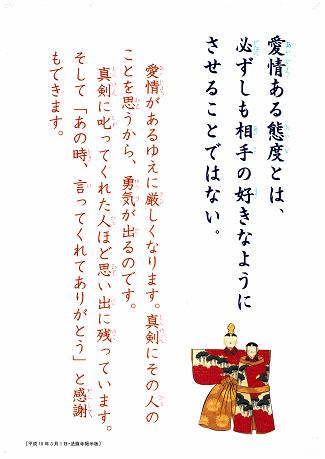 愛情ある態度とは、
必ずしも相手の好きなように
させることではない。
愛情があるゆえに厳しくなります。真剣にその人の
ことを思うから、勇気が出るのです。
真剣に叱ってくれた人ほど思い出に残っています。
そして「あの時、言ってくれてありがとう」と感謝
もできます。